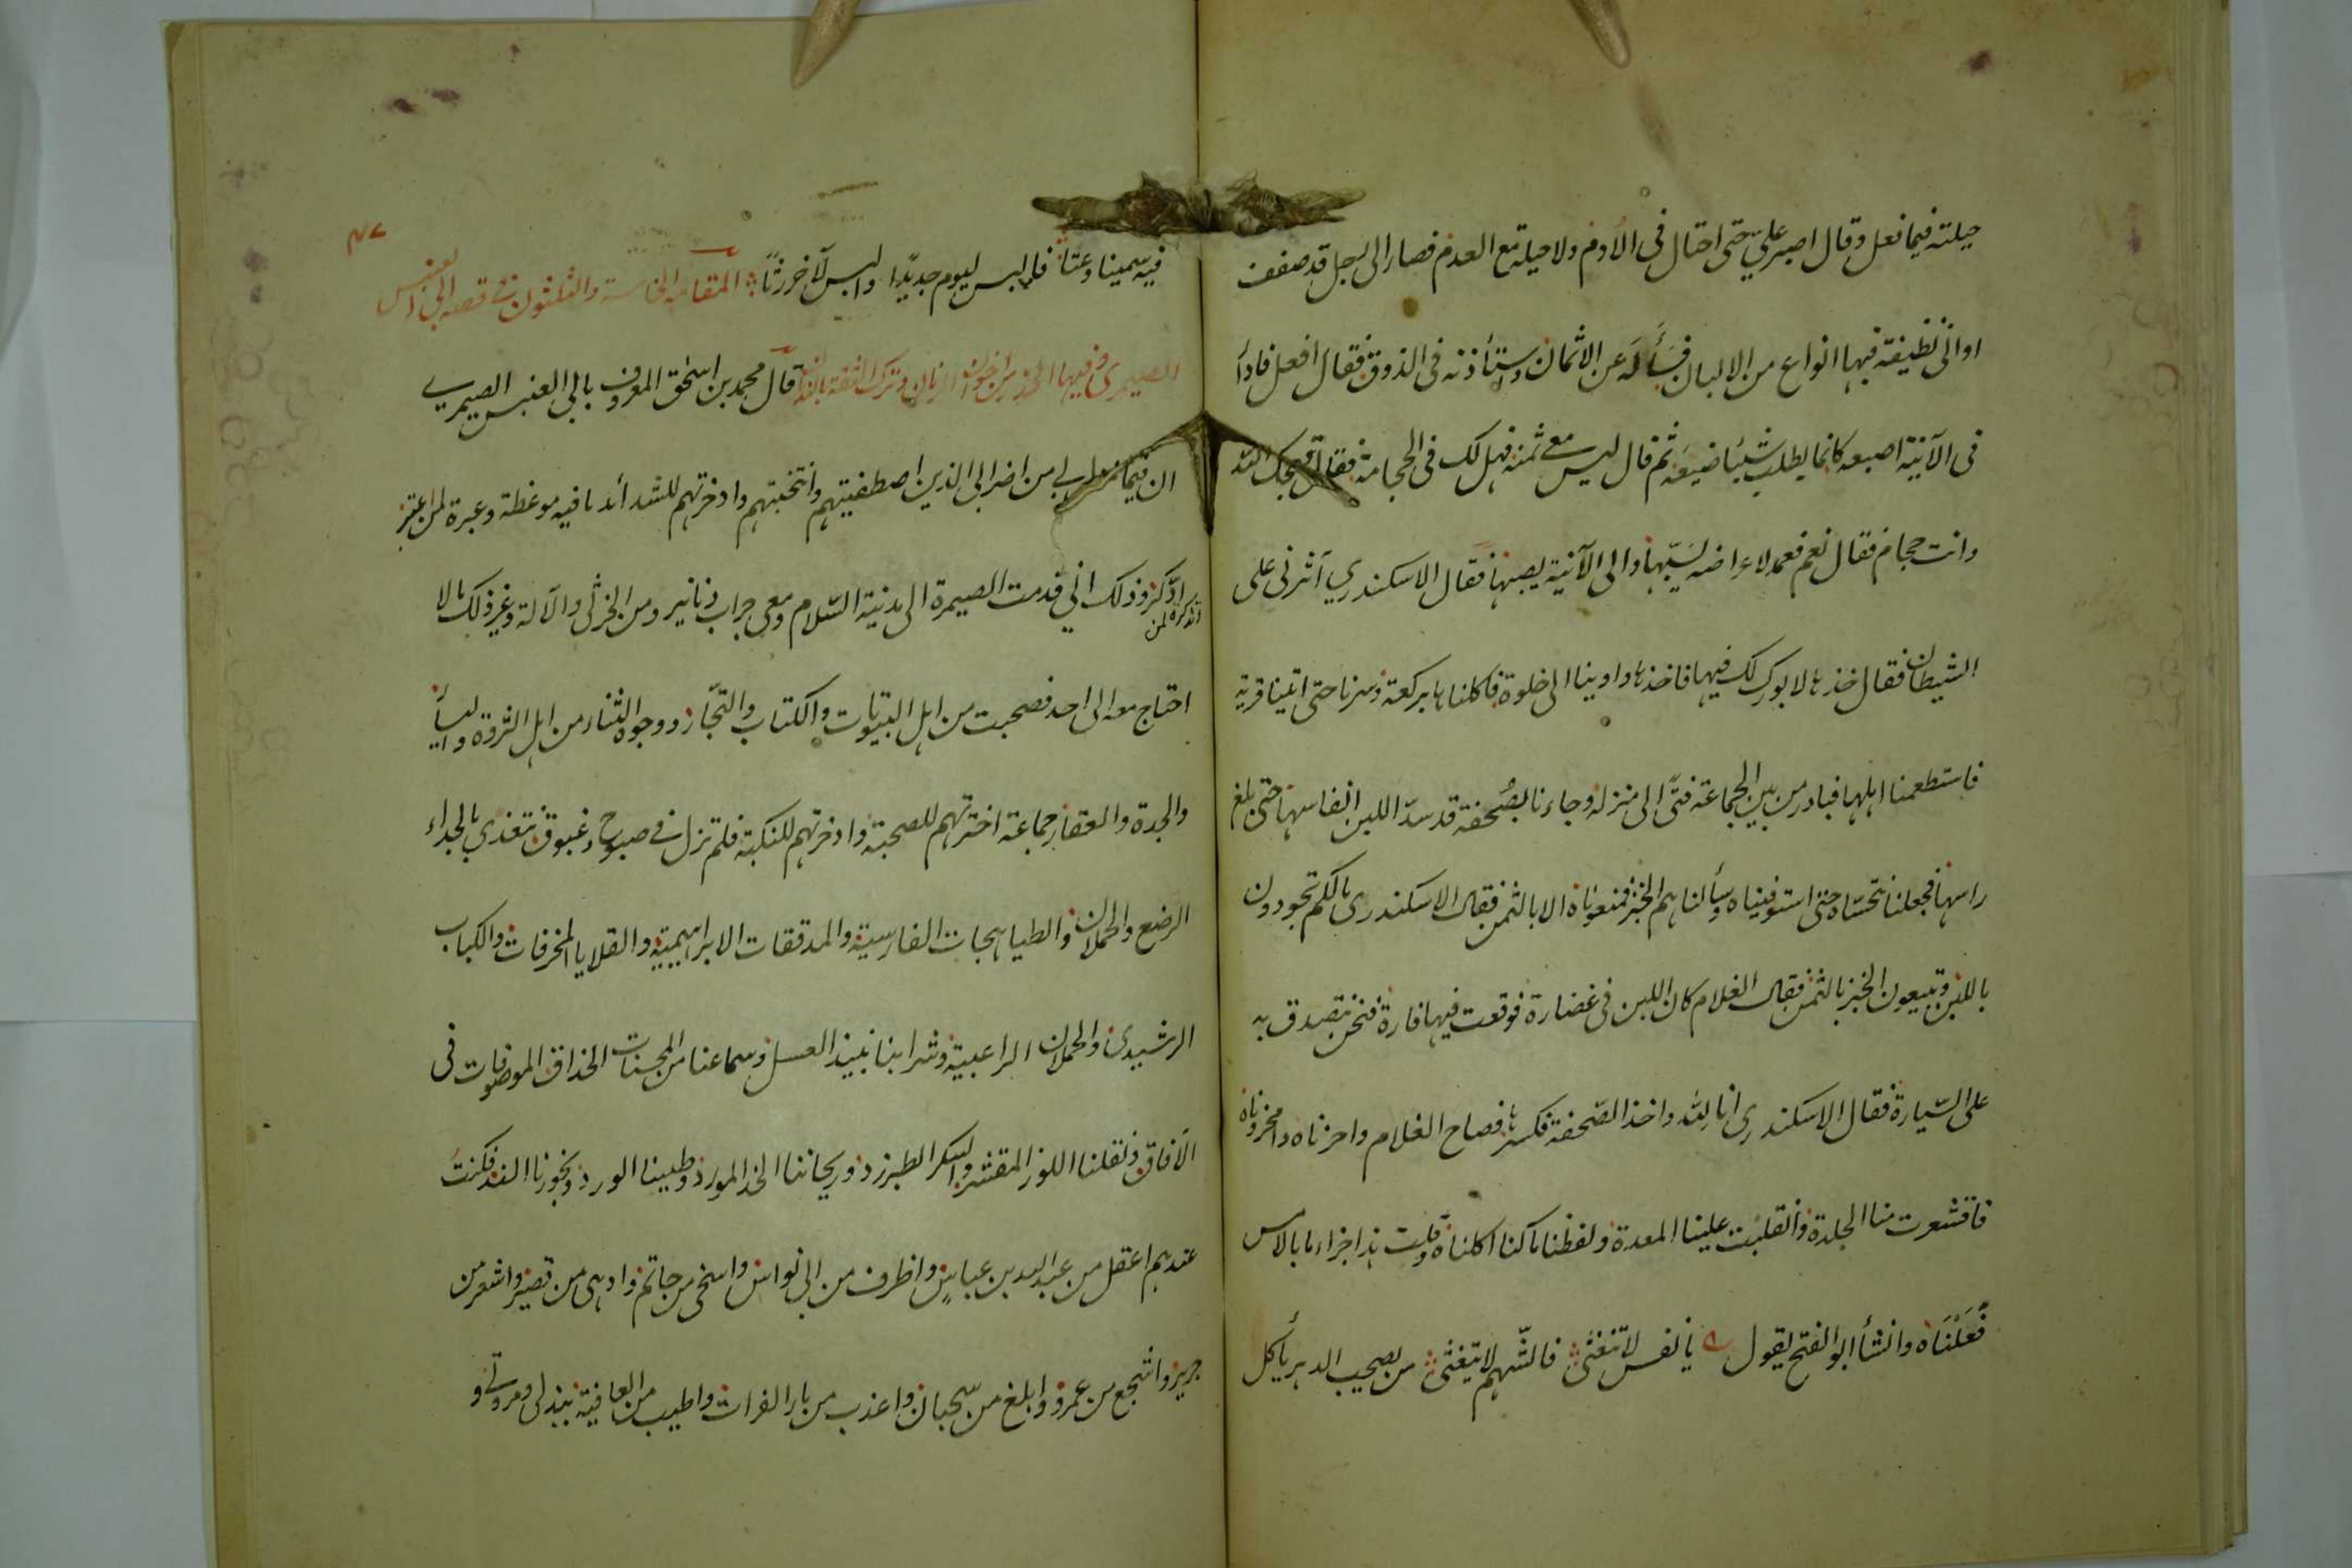 حيلته فيما فعل وقال اصبر علي حتى احتال في الأدم ولا حيلة مع العدم فصار الى رجل قد صفف
اواني نظيفة فيها انواع من الالبان فسأله عن الاثمان واستأذنه في الذوق فقال افعل فادأر
في الآنية اصبعه كانما يطلب شيئا ضيعه ثم قال ليس معي ثمنه فهل لك في الحجامة فقال قبحك الله
وانت حجام فقال نعم فعمد لاعراضه يسبها والى الآنية يصبها فقال الاسكندري آثرني على
الشيطان فقال خذها لا بورك لك فيها فاخذها واوينا الى خلوة فاكلناها بركعة وسرنا حتى اتينا قرية
فاستطعمنا اهلها فبادر من بين الجماعة فتى الى منزله وجاءنا بصحفة قد سد اللبن انفاسها حتى بلغ
راسها فجعلنا نتحساه حتى استوفيناه وسألناهم الخبز فمنعوناه الا بالثمن فقال الاسكندري مالكم تجودون
باللبن وتبيعون الخبز بالثمن فقال الغلام كان اللبن في غضارة فوقعت فيها فارة فنحن نتصدق به
على السيارة فقال الاسكندري انا لله واخذ الصحفة فكسرها فصاح الغلام واحزناه وامحروناه
فاقشعرت منا الجلدة وانقلبت علينا المعدة ولفظنا ما كنا اكلناه وقلت هذا جزاء ما بالامس
فعلناه وانشأ ابو الفتح يقول يا نفس لا تتغثي فالشهم لا يتغثى من يصحب الدهر يأكل
٤٧
فيه سمينا وغثا فلبس ليوم جديدا والبس لآخر رثا المقامة الخامسة والثلثون في قصة ابي العنبس
الصيمري وفيها الحذر من اخوان الزمان وترك الثقة بالندمان قال محمد بن اسحق المعروف بابي العنبس الصيمري
ان فيما نزل بي من اخواني الذين اصطفيتهم وانتخبتهم وادخرتهم للشدائد ما فيه موعظة وعبرة لمن اعتبر
وتذكرة لمن ادّكر وذلك اني قدمت الصيمرة الى مدينة السلام ومعي جراب دنانير ومن الخرثي والآلة وغير ذلك مالا
احتاج معه الى احد فصحبت من اهل البيوتات والكتاب والتجار ووجوه الثناء من اهل الثروة واليسار
والجدة والعقار جماعة اخترتهم للصحبة وادخرتهم للنكبة فلم نزل في صبوح وغبوق نتغذي بالجداء
الرضع والحملان والطباهجات الفارسية والمدققات الابراهيمية والقلايا المحرقات والكباب
الرشيدي والحملان الراعبية وشرابنا نبيذ العسل وسماعنا من المحسنات الحذاق الموصوفات في
الآفاق ونقلنا اللوز المقشر والسكر الطبرزد وريحاننا الخد المورد وطيبنا الورد وبخورنا الند فكنت
عندهم اعقل من عبد الله بن عباس واظرف من ابي نواس واسخى من حاتم وادهى من قصير واشعر من
جرير واشجع من عمرو وابلغ من سحبان واعذب من ماء الفرات واطيب من العافية ببذلي ومروتي و